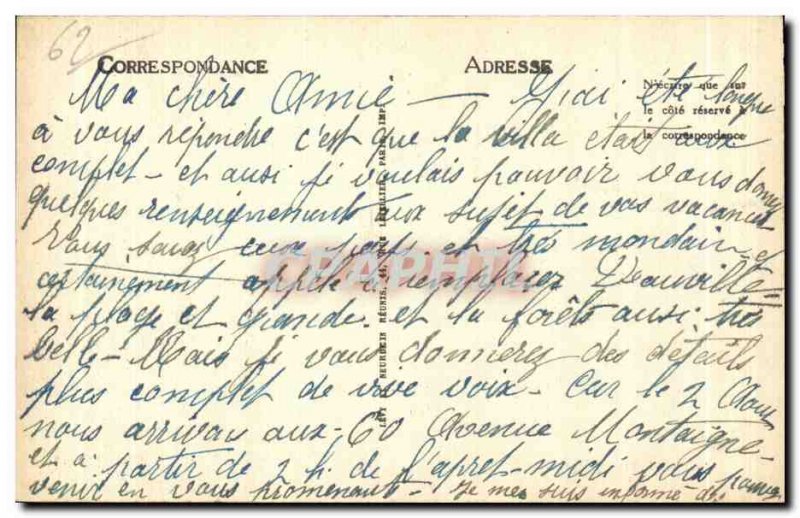 62
CORRESPONDANCE ADRESSE
N'écrire que sur
le côté réservé à
la correspondance
Ma chère Amie — J'ai été longue
à vous répondre c'est que la villa étais
complet — et aussi je voulais pouvoir vous donner
quelques renseignement aux sujet de vos vacances
Vous savez ceux pays et très mondain et
certainement appelé a remplacer Deauville —
la plage et grande. et la forêts aussi très
belle — Mais je vous donnerez des détails
plus complet de vive voix — Car le 2 Aout
nous arrivas aux — 60 Avenue Montaigne —
et a partir de 2 h. de l'apret-midi vous pouvez
venir en vous promenant — Je me suis informé
LEVY ET NEURDEIN RÉUNIS, 44, RUE LETELLIER, PARIS IMP.
CPAPHIL